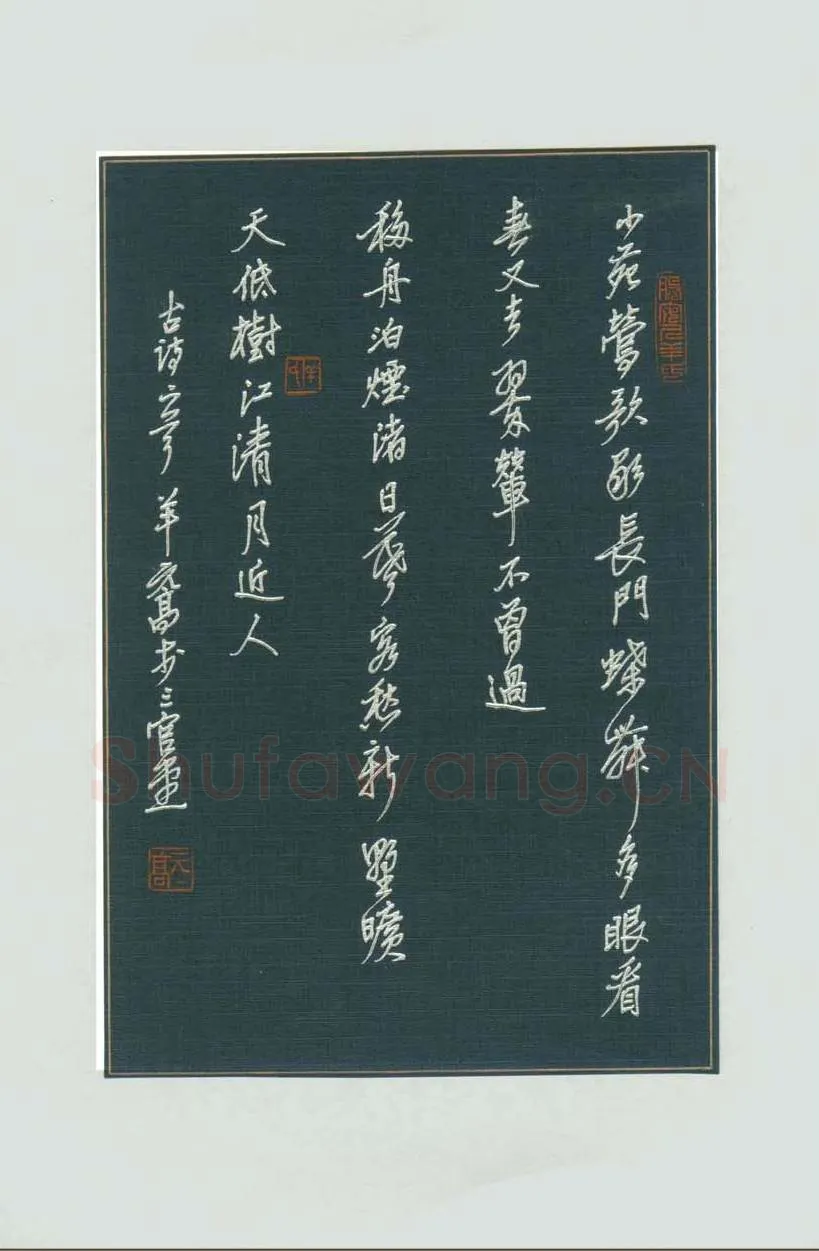 小苑鶯歌歇長門蝶舞多眼看
春又去翠輦不曾過
移舟泊煙渚日暮客愁新墅曠
天低樹江清月近人
古诗二章羊元高书三官堂
元高
Shufawang.CN